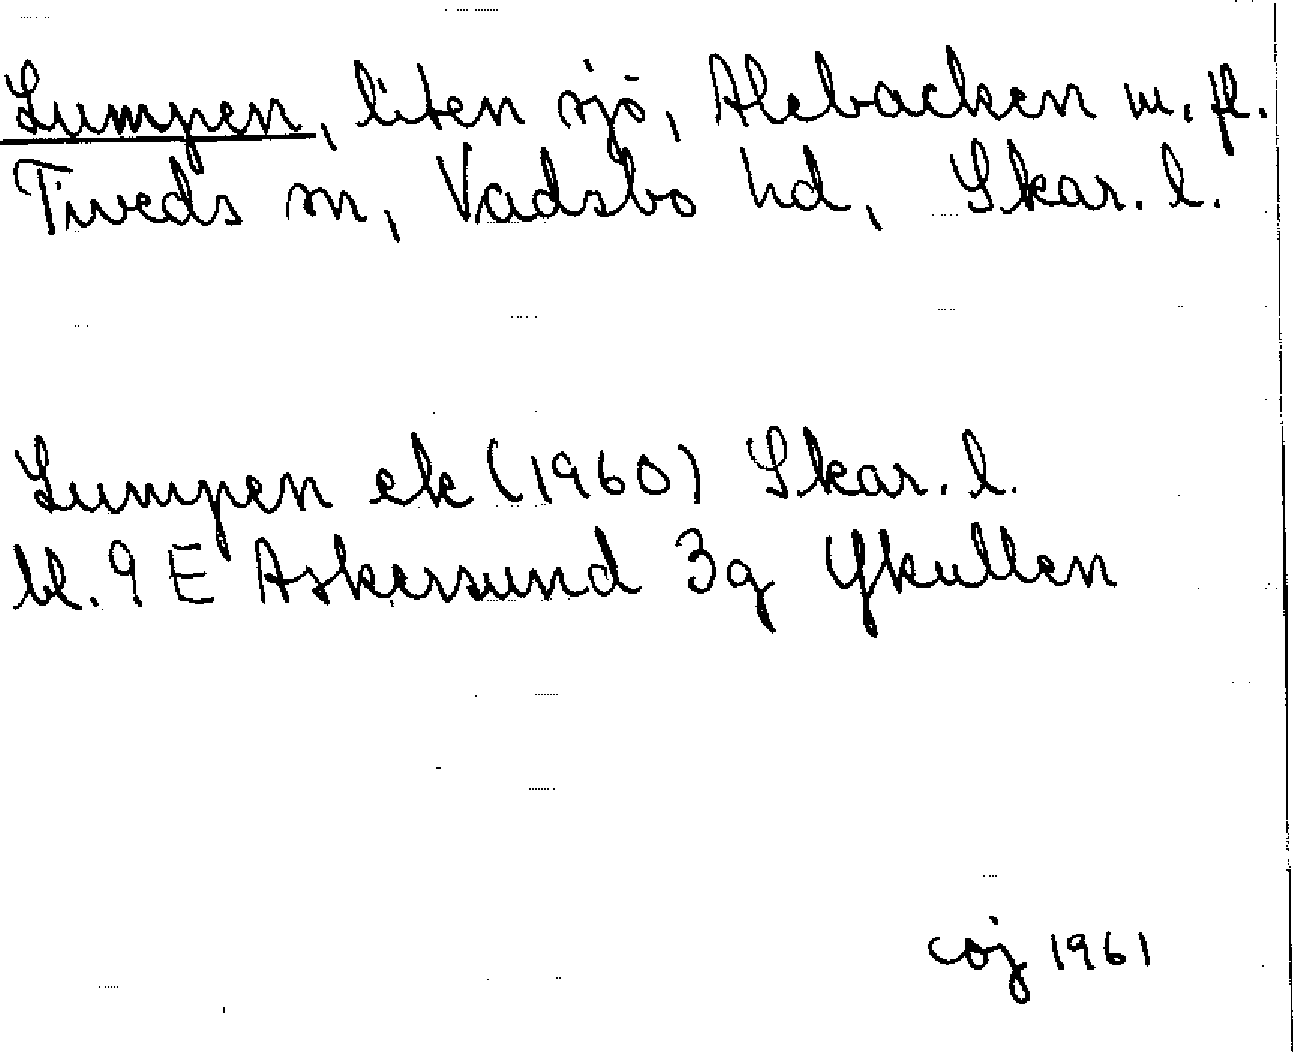 Lumpen, liten sjö, Alebacken m. fl.
Tiveds sn, Vadsbo hd, Skar. l.
Lumpen ek (1960) Skar. l.
bl. 9 E Askersund 3g Ykullen
coj 1961